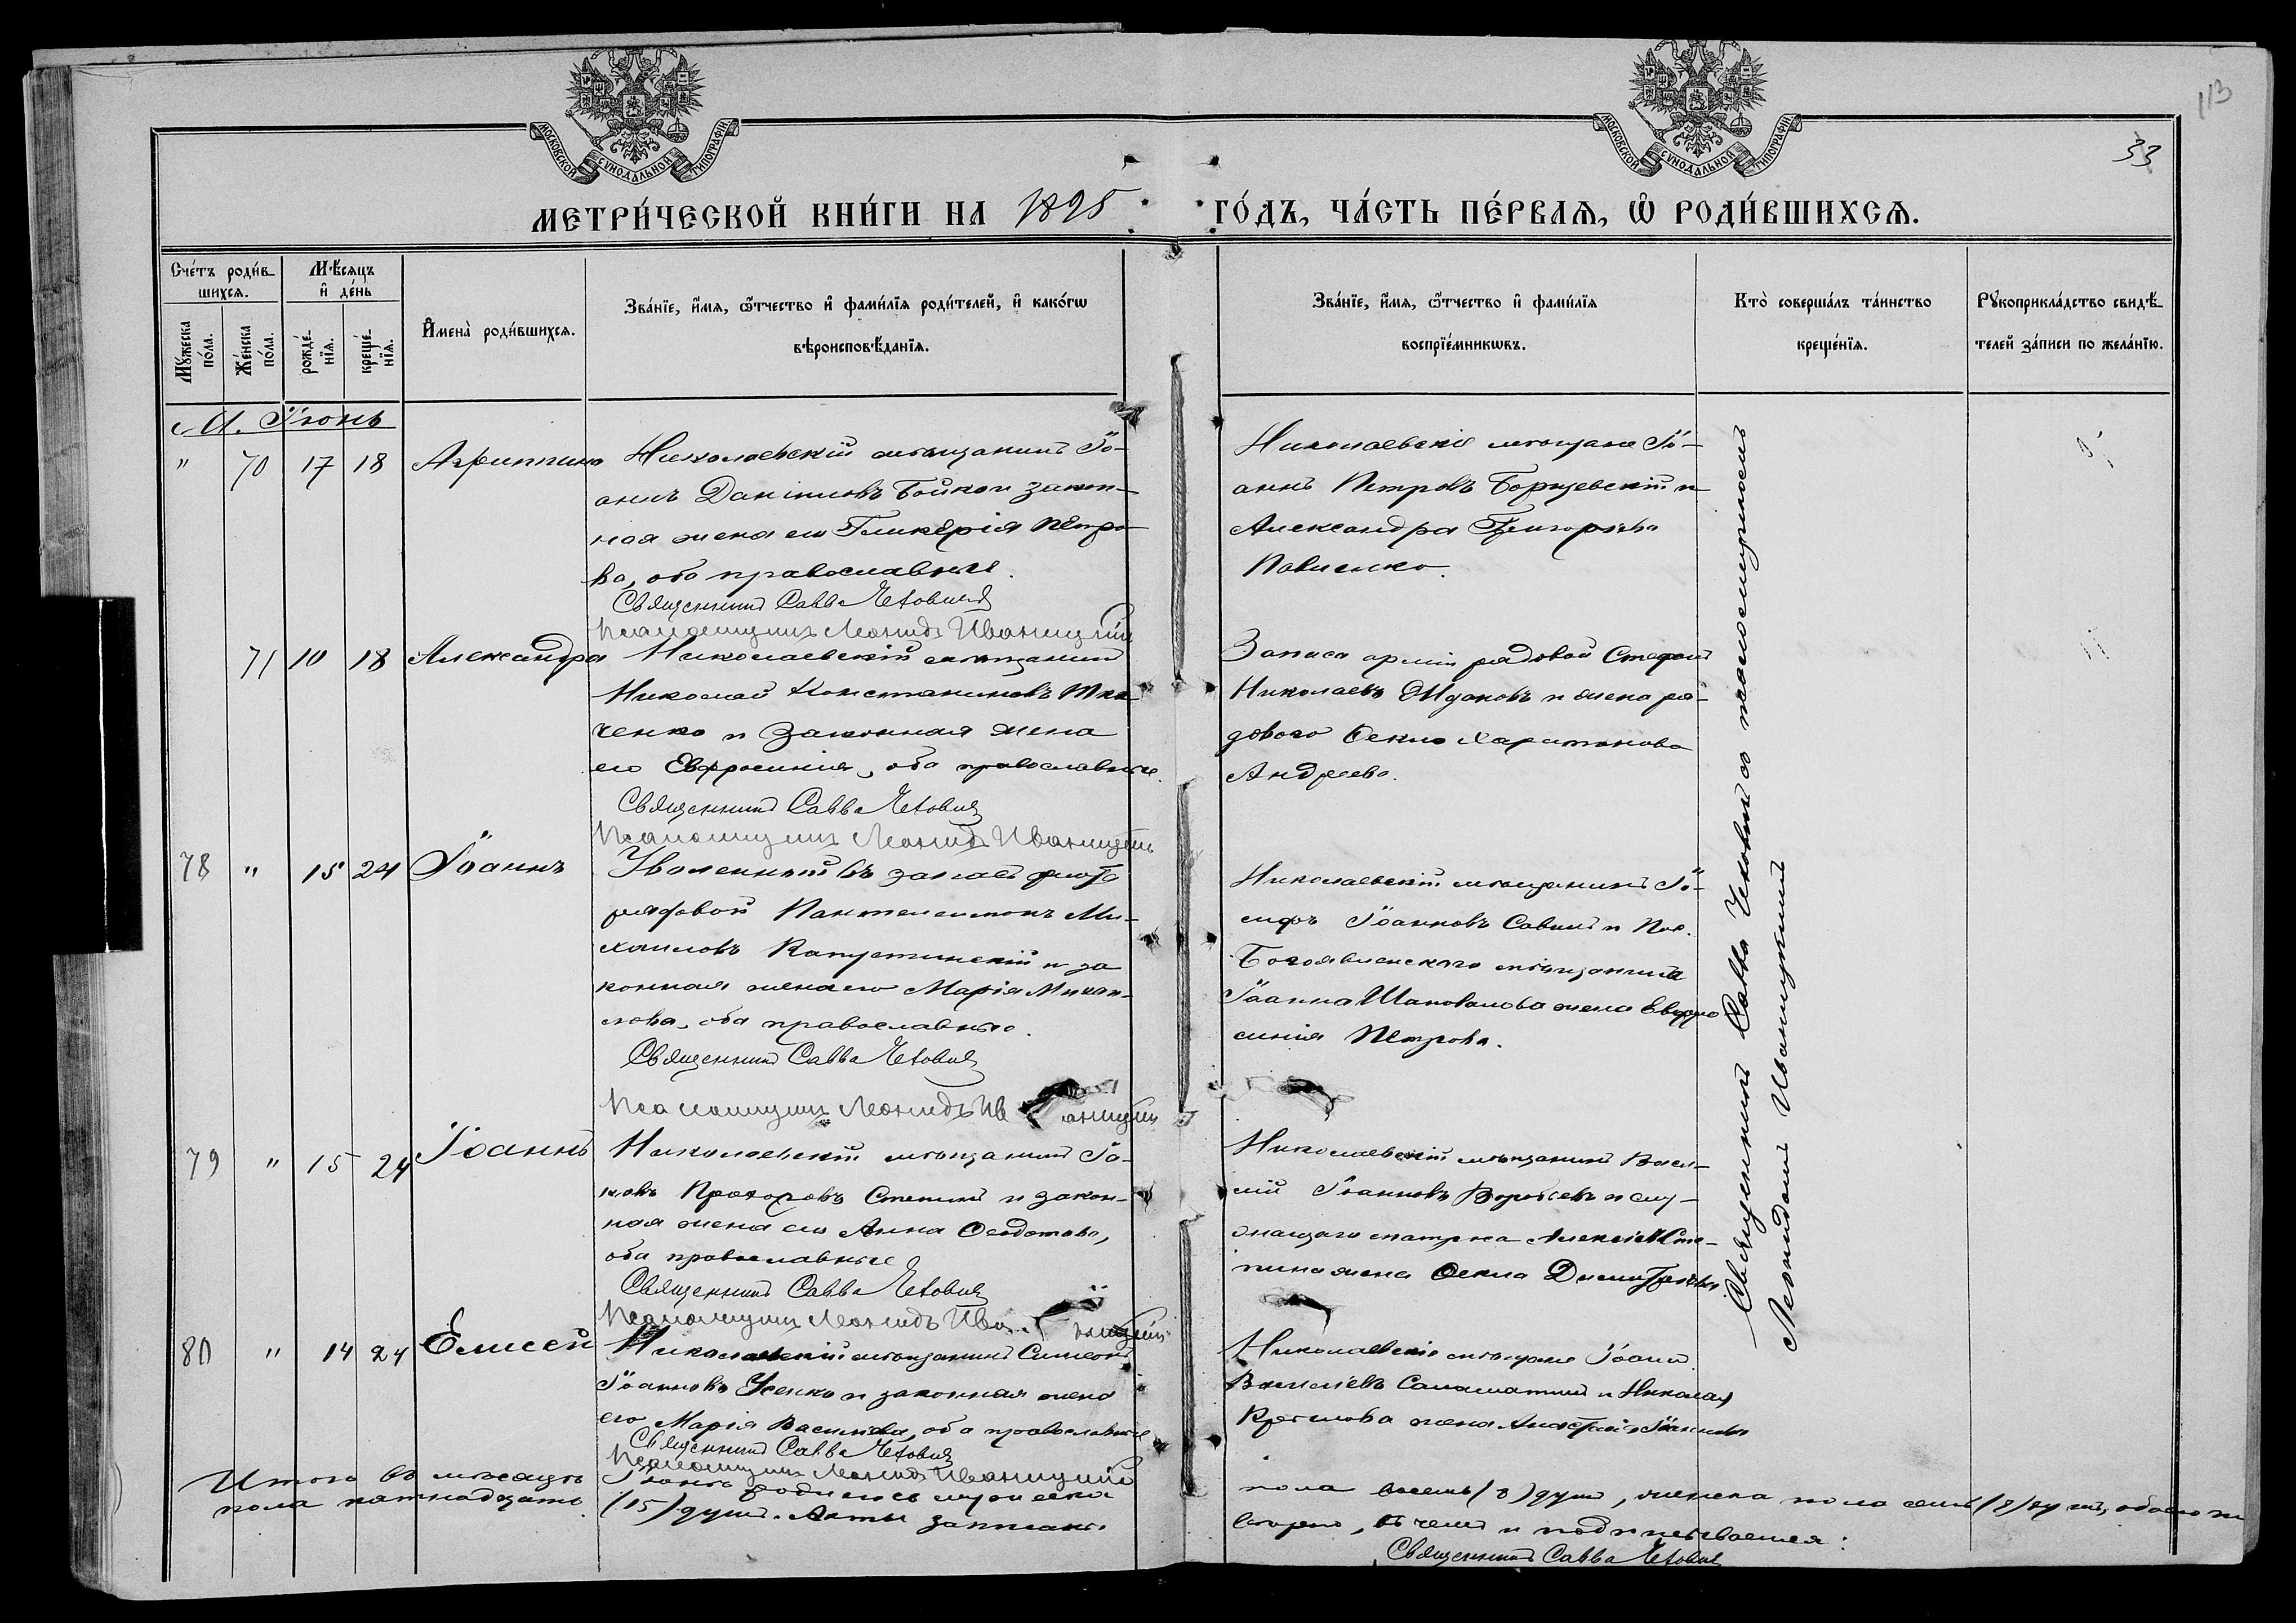 113
33
МОСКОВСКОЙ СѴНОДАЛЬНОЙ ТИПОГРАФІИ
МОСКОВСКОЙ СѴНОДАЛЬНОЙ ТИПОГРАФІИ
МЕТРИ́ЧЕСКОЙ КНИ́ГИ НА 1895 ГО́ДЪ, ЧА́СТЬ ПЕ́РВАЯ, Ѡ РОДИ́ВШИХСЯ.
Сче́тъ роди́в-
шихся.
Мꙋ́жеска по́ла.
Же́нска по́ла.
Мѣ́сяцъ
и де́нь
рожде́-
нїя.
креще́-
нїя.
Имена̀ роди́вшихся.
Зва́нїе, и́мя, ѻ́тчество и фами́лїя роди́телей, и како́гѡ
вѣроисповѣ́данїя.
Зва́нїе, и́мя, ѻ́тчество и фами́лїя
воспрїе́мникѡвъ.
Кто̀ соверша́лъ та́инство
креще́нїя.
Рꙋкоприкла́дство свидѣ́-
телей за́писи по жела́нїю.
М. Іюнь
" 70 17 18 Агриппина
Николаевскій мѣщанинъ Іо-
аннъ Даніиловъ Бойко и закон-
ная жена его Гликерія Петро-
ва, оба православные.
Священникъ Савва
Псаломщикъ Леонидъ Иваницкій
Николаевскіе мѣщане Іо-
аннъ Петровъ Борщевскій и
Александра Григорьева
Павленко.
71 10 18 Александра
Николаевскій мѣщанинъ
Николай Константиновъ Тка-
ченко и законная жена
его Евфросинія, оба православные.
Священникъ Савва
Псаломщикъ Леонидъ Иваницкій
Запаса арміи рядовой Стефанъ
Николаевъ и жена ря-
дового Ѳекла Харитонова
Андреева.
78 " 15 24 Іоаннъ
Уволенный въ запасъ флота
рядовой Пантелеимонъ Ми-
хаиловъ Капустинскій и за
конная жена его Марія Михаи-
лова, оба православные.
Священникъ Савва
Псаломщикъ Леонидъ Иваницкій
Николаевскій мѣщанинъ Іо-
сифъ Іоанновъ Савинъ и Пос.
Богоявленскаго мѣщанина
Іоанна Шаповалова жена Евфро
синія Петрова.
79 " 15 24 Іоаннъ
Николаевскій мѣщанинъ Іа-
ковъ Прохоровъ Степинъ и закон-
ная жена его Анна Ѳеодотова,
оба православные
Священникъ Савва
Псаломщикъ Леонидъ Иваницкій
Николаевскій мѣщанинъ Васи-
лій Іоанновъ Воробьевъ и слу-
жащаго матроса Алексія Сте-
пина жена Ѳекла Димитріева
80 " 14 24 Елисей
Николаевскій мѣщанинъ Симеонъ
Іоанновъ Усенко и законная жена
его Марія Васильева, оба православные
Священникъ Савва
Псаломщикъ Леонидъ Иваницкій
Николаевскіе мѣщане Іоаннъ
Василіевъ Саламатинъ и Николая
жена Анастасія Іоаннова
Священникъ Савва съ псаломщикомъ
Леонидомъ Иваницкимъ
Итого въ мѣсяцѣ Іюнѣ родилось мужеска
пола восемь (8) душъ, женска пола семь душъ, обоего
пола пятнадцать (15) душъ. Акты записаны
вѣрно, въ чемъ и подписываемся:
Священникъ Савва